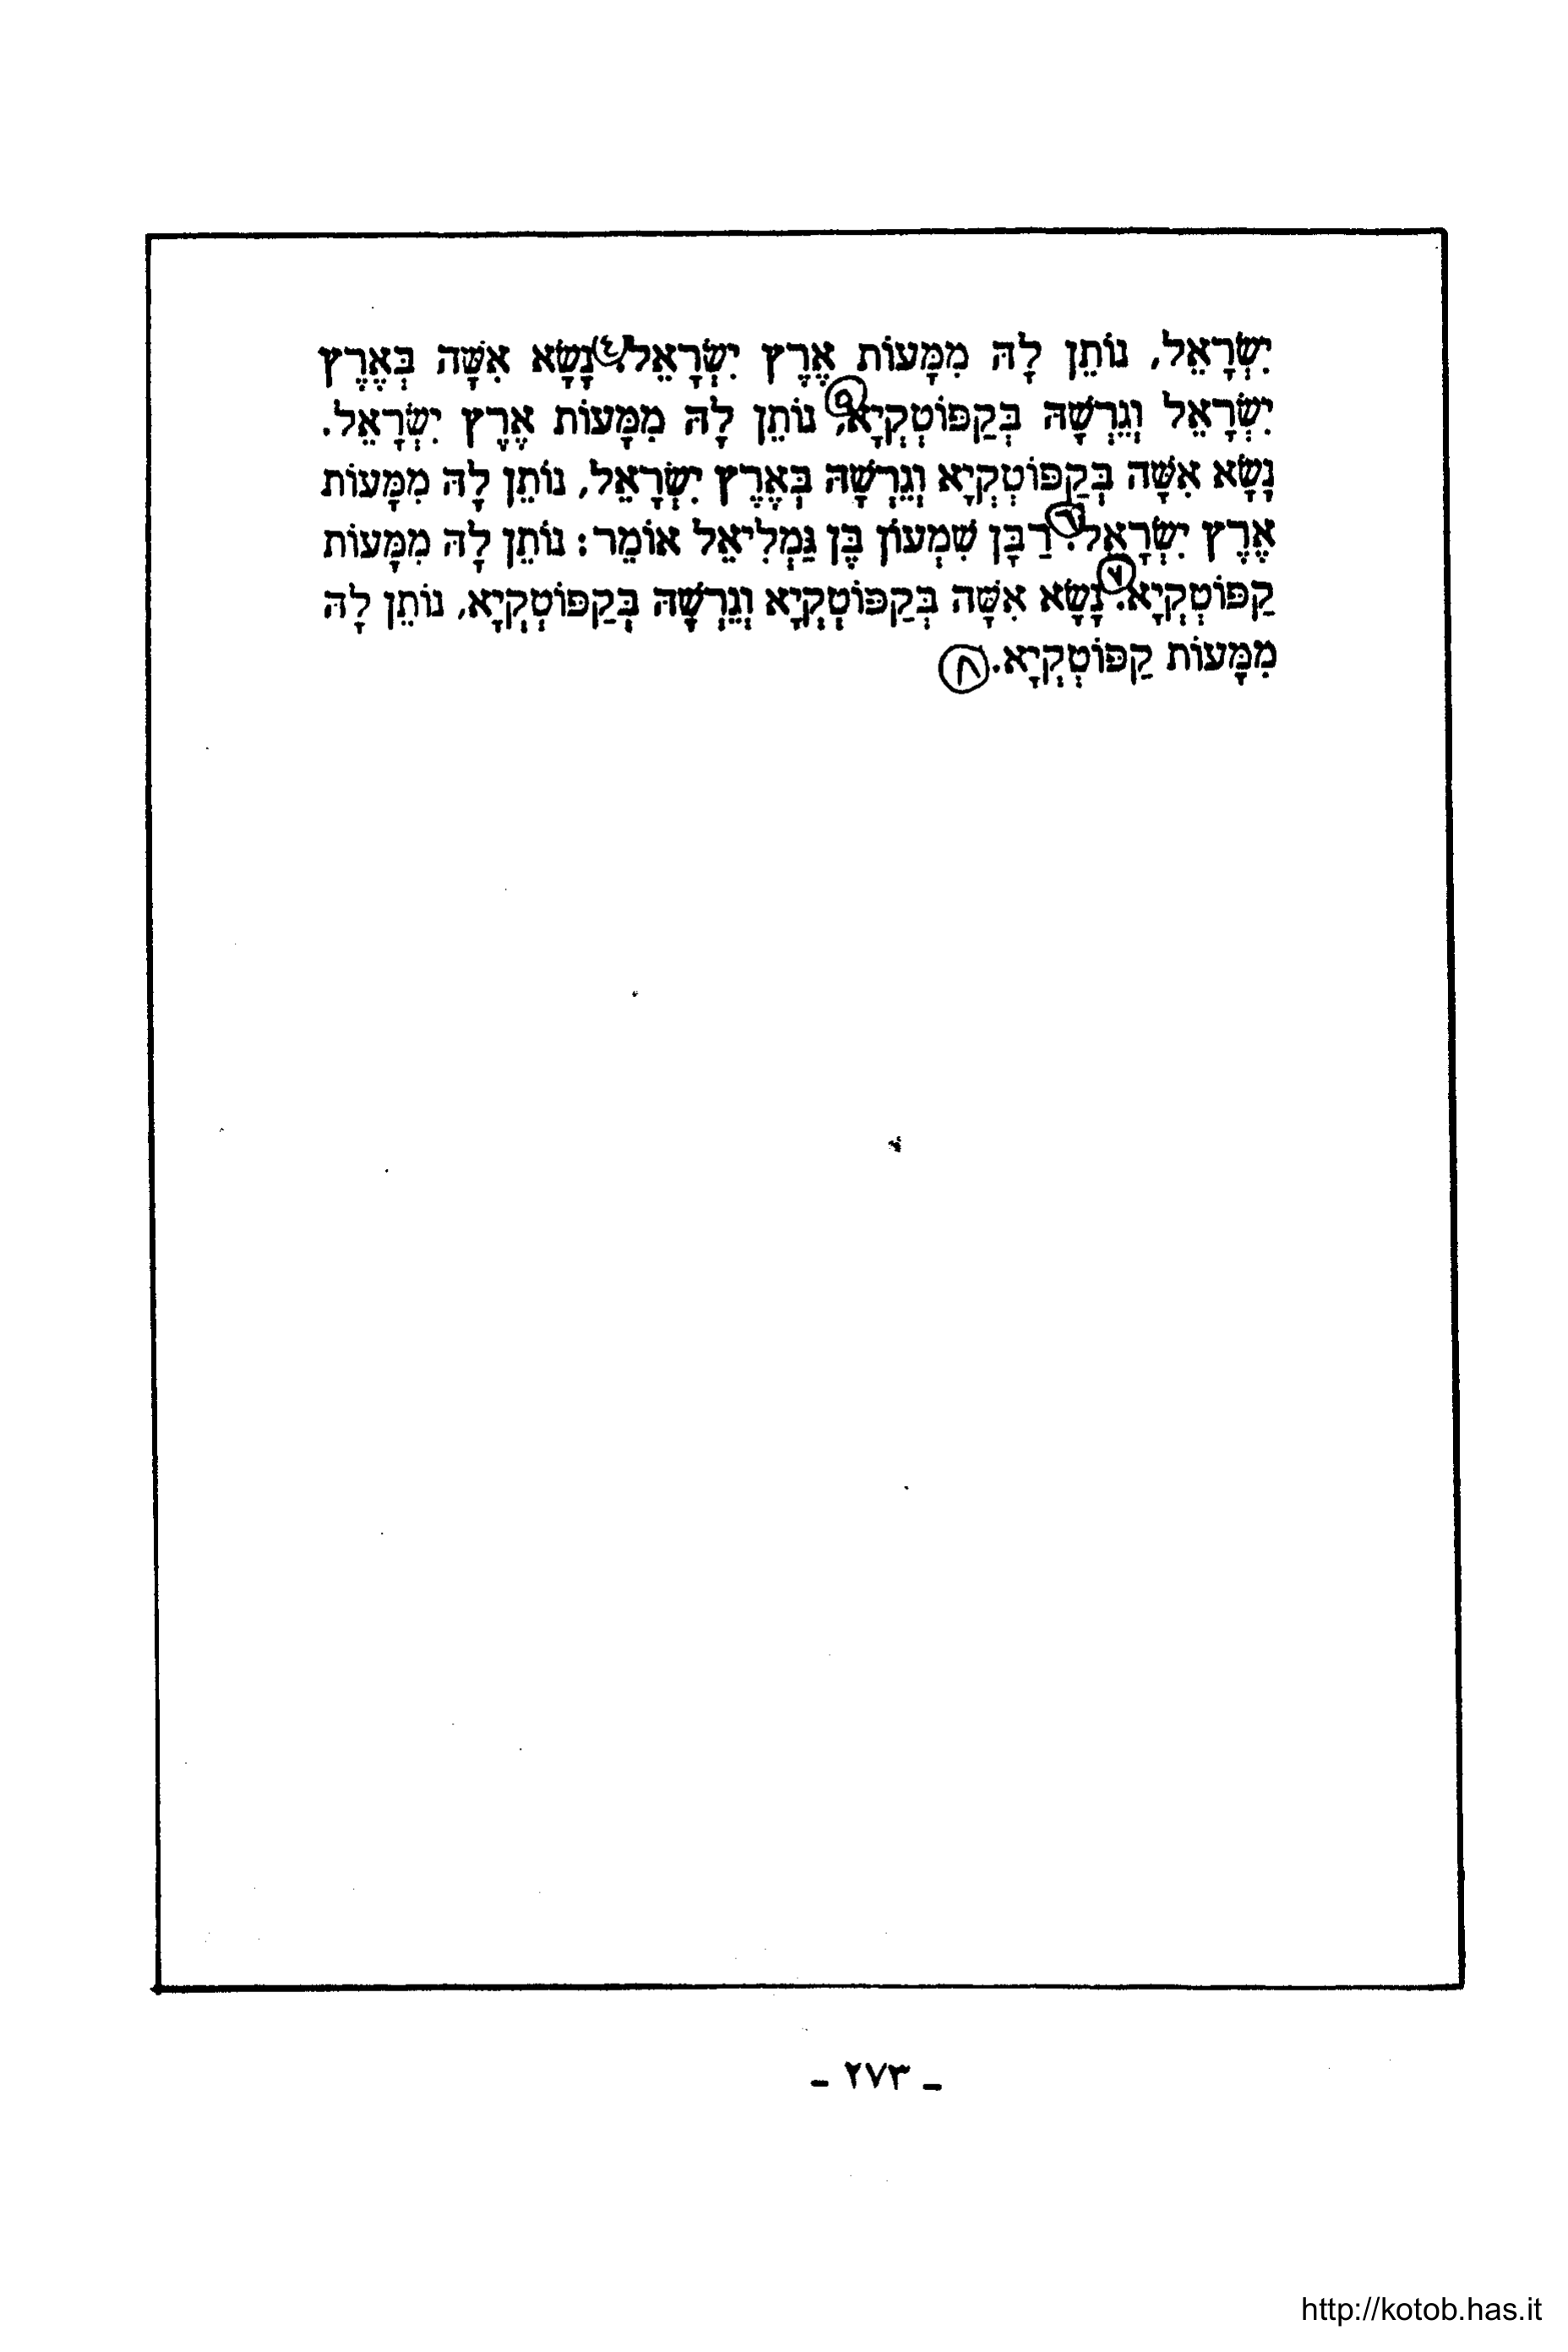 יִשְׂרָאֵל, נוֹתֵן לָהּ מִמָּעוֹת אֶרֶץ יִשְׂרָאֵל. (٤) נָשָׂא אִשָּׁה בְּאֶרֶץ
יִשְׂרָאֵל וְגֵרְשָׁהּ בְּקַפּוֹטְקְיָא, (٥) נוֹתֵן לָהּ מִמָּעוֹת אֶרֶץ יִשְׂרָאֵל.
נָשָׂא אִשָּׁה בְּקַפּוֹטְקְיָא וְגֵרְשָׁהּ בְּאֶרֶץ יִשְׂרָאֵל, נוֹתֵן לָהּ מִמָּעוֹת
אֶרֶץ יִשְׂרָאֵל. (٦) רַבָּן שִׁמְעוֹן בֶּן גַּמְלִיאֵל אוֹמֵר: נוֹתֵן לָהּ מִמָּעוֹת
קַפּוֹטְקְיָא. (٧) נָשָׂא אִשָּׁה בְּקַפּוֹטְקְיָא וְגֵרְשָׁהּ בְּקַפּוֹטְקְיָא, נוֹתֵן לָהּ
מִמָּעוֹת קַפּוֹטְקְיָא. (٨)
- ٢٧٣ -
http://kotob.has.it